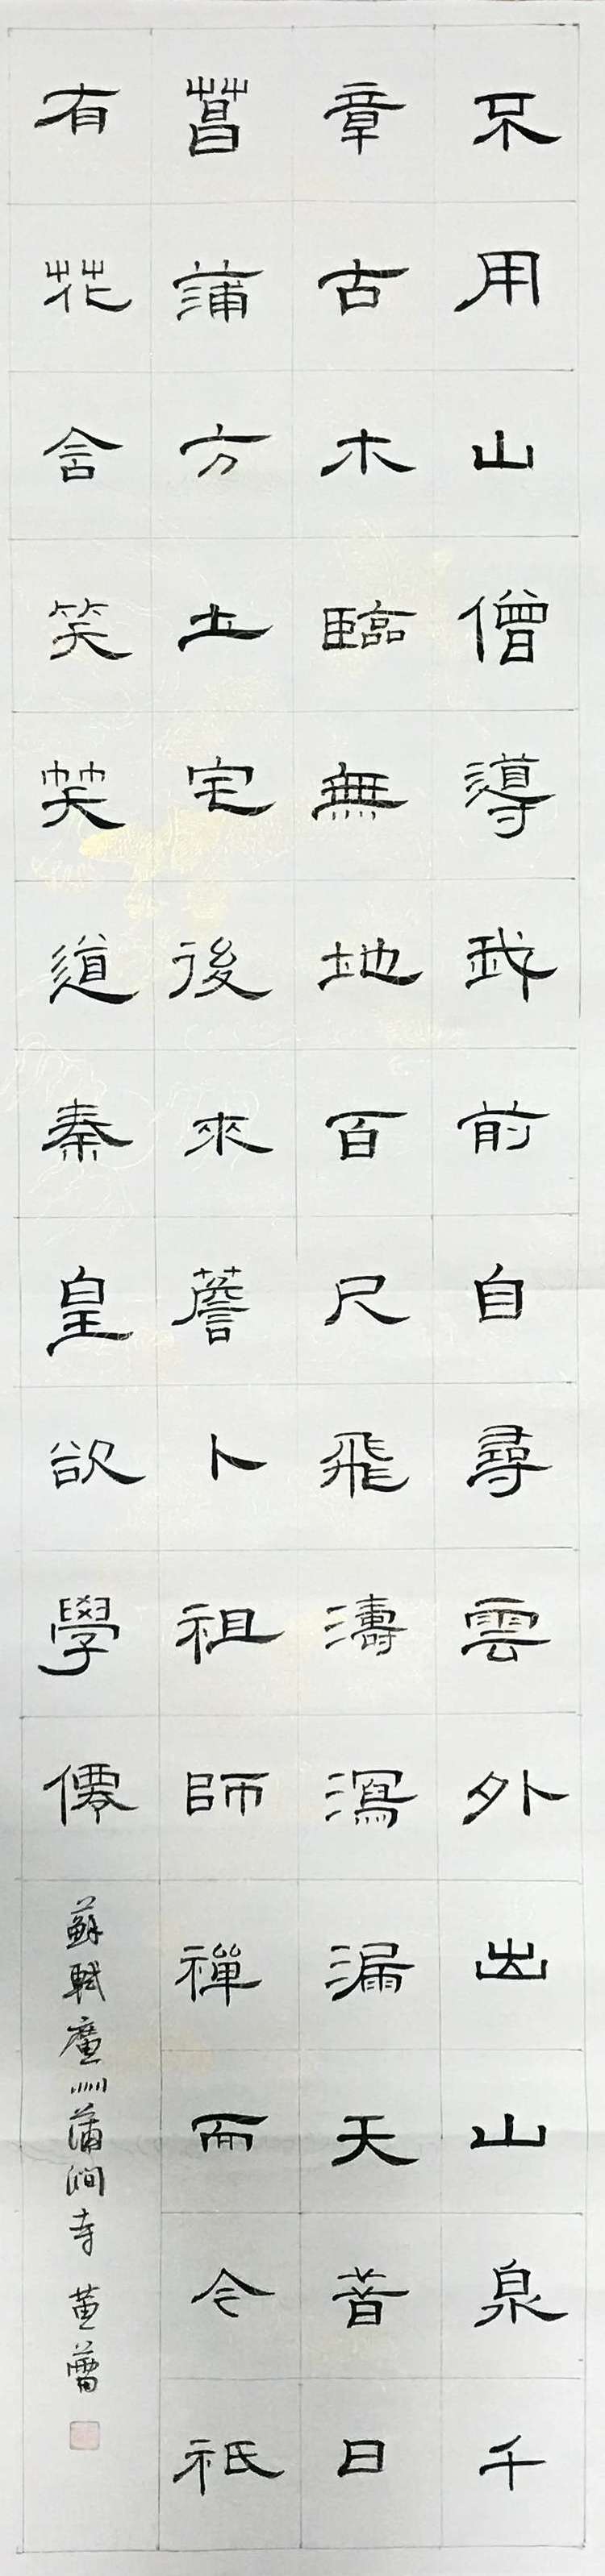 不用山僧導我前自尋雲外出山泉千
章古木臨無地百尺飛濤瀉漏天昔日
菖蒲方士宅後來薝卜祖師禪而今祇
有花含笑笑道秦皇欲學僊
蘇軾廣州蒲澗寺 黄